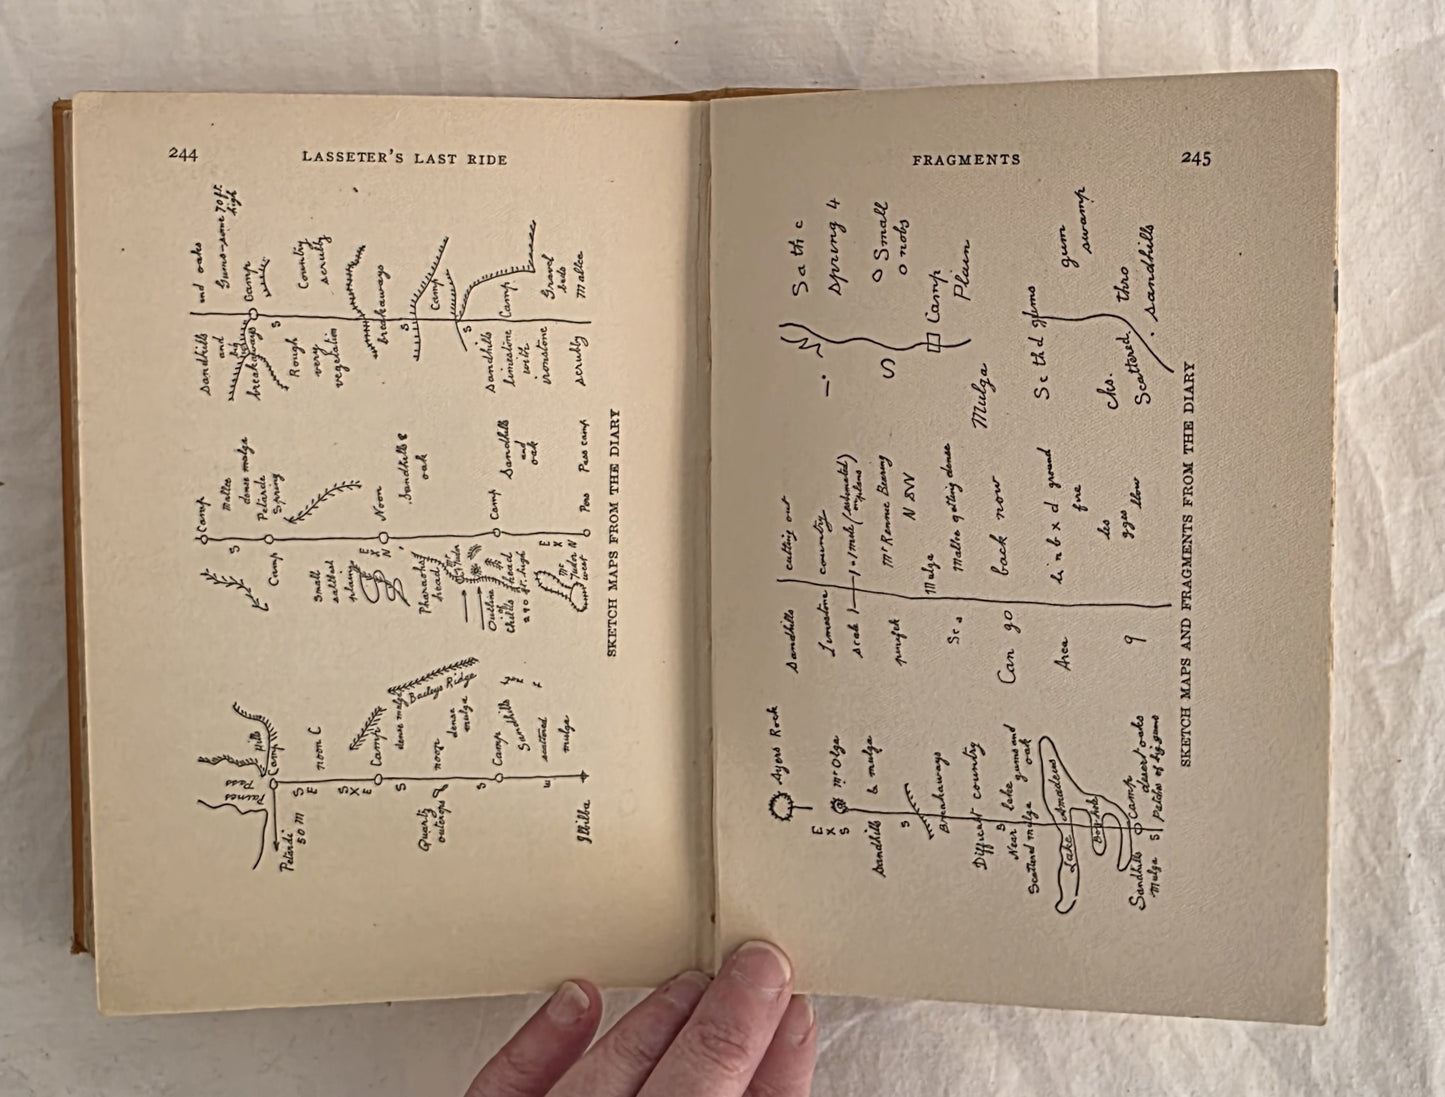 244
LASSETER'S LAST RIDE
Paines
Pass
Hills
Camp
Petardi
50 m
S
E
noon C
S
X
E
Camp
S
dense mulga
Baileys Ridge
noon
dense
mulga
Quartz
outcrops
S
Camp
Sandhills
E
scattered
mulga
Ilbilba
Camp
S
Mallee
dense mulga
Petarde
Spring
Camp
Small
saltbush
plains
E
X
N
Noon
Sandhills &
oak
Pharaohs
head
Mr
Tudor
Outline
of
this
head
cliffs
290 ft. high
Camp
Sandhills
and
oak
E
X
N
Mt
Tudor
west
Pass camp
Sandhills
and
big
breakaways
and oaks
Gums-some 70 ft.
high
Camp
S
Rough
very
vegetation
Country
scrubby
breakaways
S
Camp
S
Sandhills
limestone
with
ironstone
Camp
Gravel
beds
Mallee
scrubby
SKETCH MAPS FROM THE DIARY
FRAGMENTS
245
Ayers Rock
E
X
S
Mt Olga
Sandhills
& mulga
S
Breakaways
Different country
S
Near lake gums and
Scattered mulga oak
Lake Amadeus
Boghole
Camp
Sandhills
desert oaks
Mulga
S
Patches of big gums
Sandhills
cutting out
Limestone
country
scale
= 1 mile (estimated)
on plans
Mt Rennie Bearing
N SW
Mulga
Mallee getting dense
Can go
back now
Area
ground
fire
les
gges
blow
9
S a th c
spring 4
S
Small
onobs
Camp
Plain
Mulga
S c th d gums
gum
swamp
cks.
Scattered
thro
sandhills
SKETCH MAPS AND FRAGMENTS FROM THE DIARY